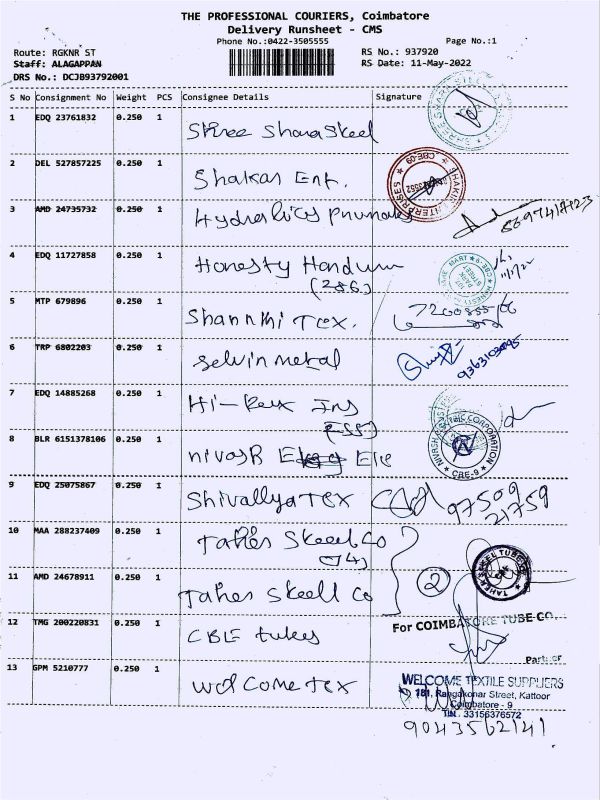 THE PROFESSIONAL COURIERS, Coimbatore
Delivery Runsheet - CMS
Phone No.:0422-3505555 Page No.:1
Route: RGKNR ST RS No.: 937920
Staff: ALAGAPPAN RS Date: 11-May-2022
DRS No.: DCJB93792001
S No Consignment No Weight PCS Consignee Details Signature
1 EDQ 23761832 0.250 1
Shree Sharaskeel
2 DEL 527857225 0.250 1
Shakar Ent.
3 AMD 24735732 0.250 1
4 EDQ 11727858 0.250 1
Honesty
(286)
5 MTP 679896 0.250 1
Tex.
6 TRP 6802203 0.250 1
Selvin metal
9363103095
7 EDQ 14885268 0.250 1
Hi-
8 BLR 6151378106 0.250 1
nivasR Ele
CORPORATION
CBE-9
9 EDQ 25075867 0.250 1
Shivallya Tex
97509
21759
10 MAA 288237409 0.250 1
Taher Skeel Co
11 AMD 24678911 0.250 1
Taher Skeell Co
2
TAHER STEEL TUBE
12 TMG 200220831 0.250 1
CBE tubes
For COIMBATORE TUBE CO.
13 GPM 5210777 0.250 1
Welcome Tex
WELCOME TEXTILE SUPPLIERS
181, Rangakonar Street, Kattoor
Coimbatore - 9
TIN. 33156376572
9043562141